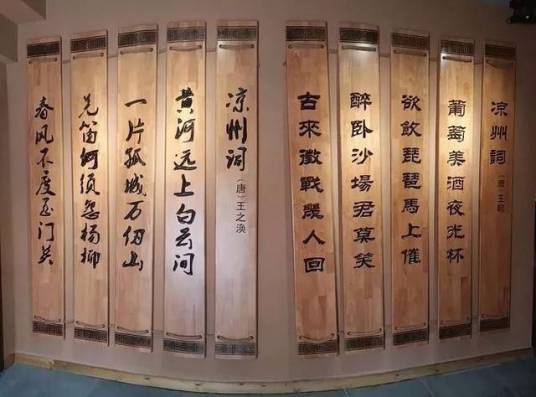 凉州词（唐）王翰
葡萄美酒夜光杯
欲飲琵琶馬上催
醉卧沙場君莫笑
古來徵戰幾人回
凉州词（唐）王之涣
黄河远上白云间
一片孤城万仞山
羌笛何须怨杨柳
春风不度玉门关